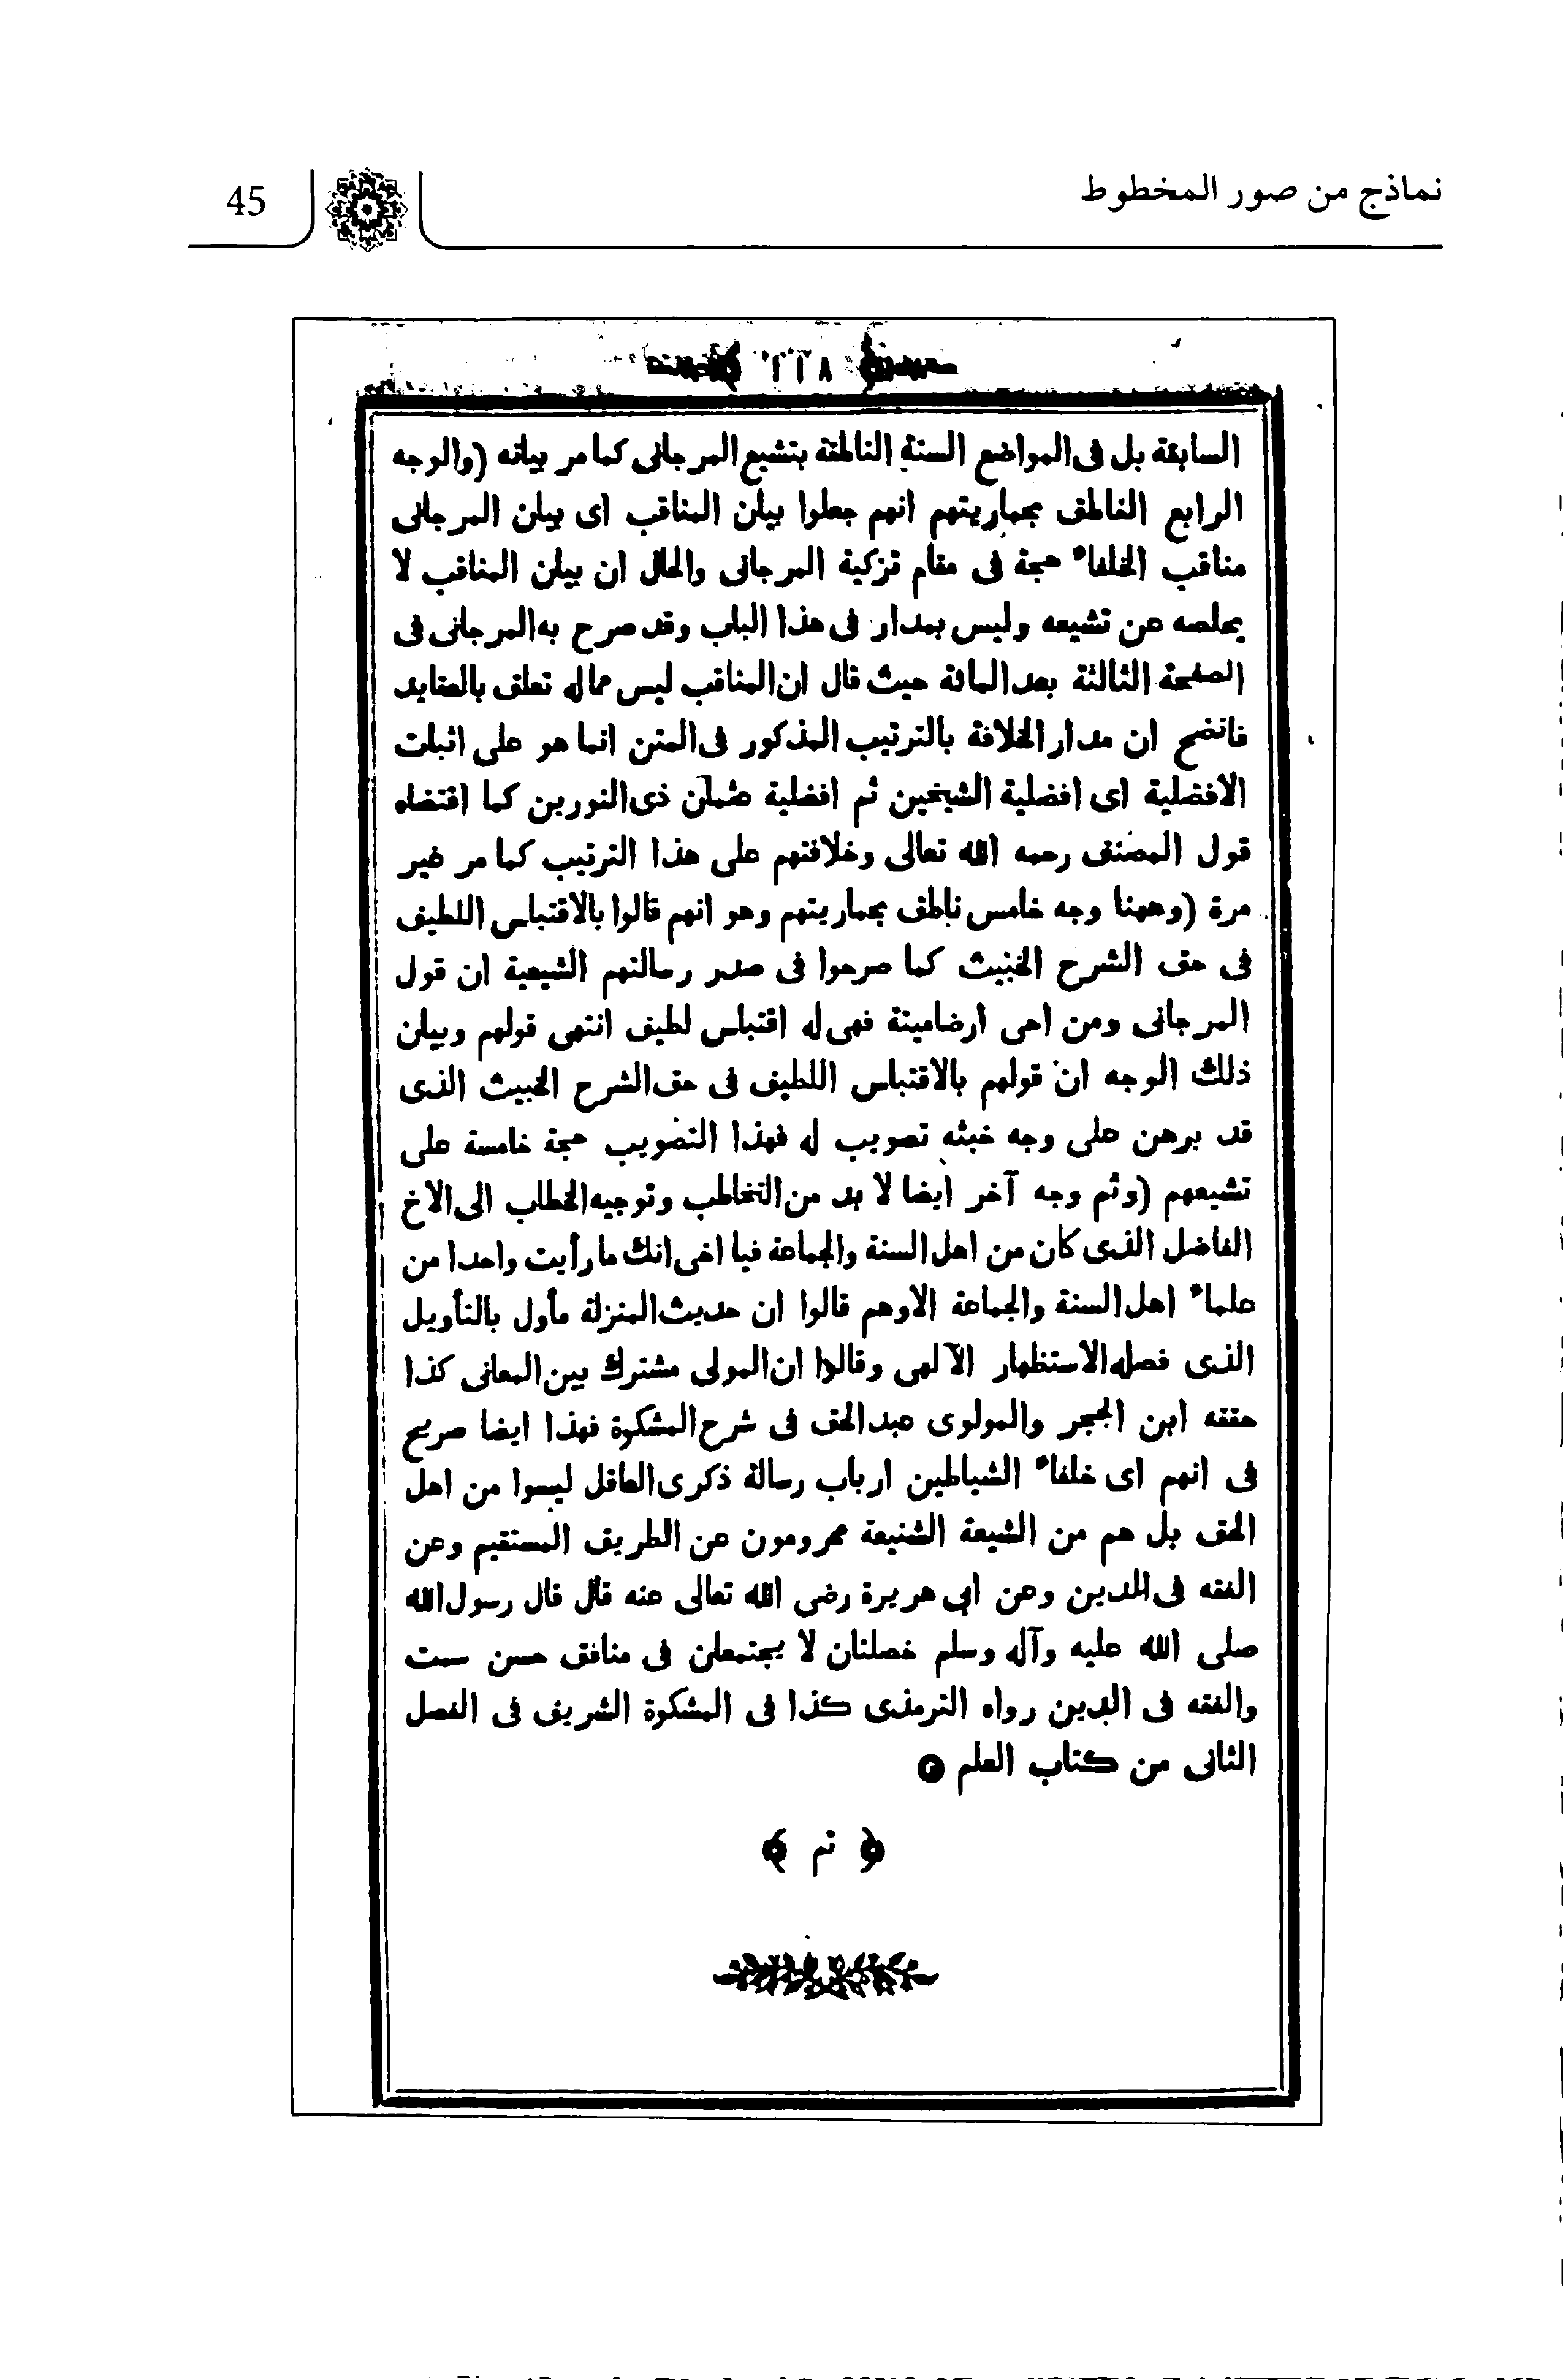 نماذج من صور المخطوط
45
السابقة بل فى المواضع الستة الناطقة بتشيع المرجانى كما مر بيانه (والوجه
الرابع الناطق بحماريتهم انهم جعلوا بيان المناقب اى بيان المرجانى
مناقب الخلفاء حجة فى مقام تزكية المرجانى والحال ان بيان المناقب لا
يخلصه عن تشيعه وليس بمدار فى هذا الباب وقد صرح به المرجانى فى
الصفحة الثالثة بعد المائة حيث قال ان المناقب ليس مماله تعلق بالعقايد
فاتضح ان مدار الخلافة بالترتيب المذكور فى المتن انما هو على اثبات
الافضلية اى افضلية الشيخين ثم افضلية عثمان ذى النورين كما اقتضاه
قول المصنف رحمه الله تعالى وخلافتهم على هذا الترتيب كما مر غير
مرة (وههنا وجه خامس ناطق بحماريتهم وهو انهم قالوا بالاقتباس اللطيف
فى حق الشرح الخبيث كما صرحوا فى صدر رسالتهم الشيعية ان قول
المرجانى ومن احى ارضا ميتة فهى له اقتباس لطيف انتهى قولهم وبيان
ذلك الوجه ان قولهم بالاقتباس اللطيف فى حق الشرح الخبيث الذى
قد برهن على وجه خبثه تصويب له فهذا التصويب حجة خامسة على
تشيعهم (وثم وجه آخر ايضا لا بد من التخاطب وتوجيه الخطاب الى الاخ
الفاضل الذى كان من اهل السنة والجماعة فيا اخى انك ما رأيت واحدا من
علماء اهل السنة والجماعة الا وهم قالوا ان حديث المنزلة مأول بالتأويل
الذى فصله الاستظهار الآلهى وقالوا ان المولى مشترك بين المعانى كذا
حققه ابن الحجر والمولوى عبد الحق فى شرح المشكوة فهذا ايضا صريح
فى انهم اى خلفاء الشياطين ارباب رسالة ذكرى العاقل ليسوا من اهل
الحق بل هم من الشيعة الشنيعة محرومون عن الطريق المستقيم وعن
الفقه فى الدين وعن ابى هريرة رضى الله تعالى عنه قال قال رسول الله
صلى الله عليه وآله وسلم خصلتان لا يجتمعان فى منافق حسن سمت
والفقه فى الدين رواه الترمذى كذا فى المشكوة الشريف فى الفصل
الثانى من كتاب العلم
﴿ تم ﴾